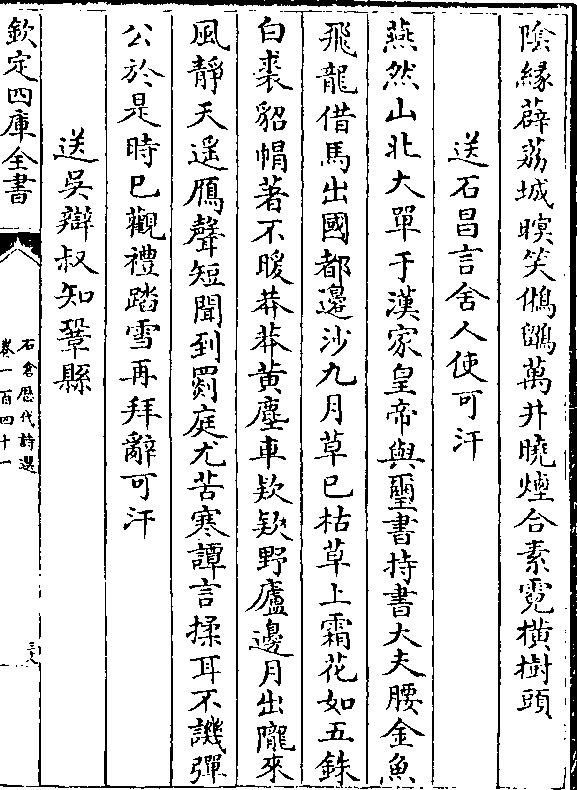 陰緣薜荔城暝笑鵂鶹萬井曉煙合素霓橫樹頭
送石昌言舍人使可汗
燕然山北大單于漢家皇帝與璽書持書大夫腰金魚
飛龍借馬出國都邊沙九月草已枯草上霜花如五銖
白裘貂帽著不暖莽莽黃塵車欵欵野廬邊月出隴來
風靜天遥鴈聲短聞到罽庭尤苦寒譚言揉耳不譏彈
公於是時已觀禮踏雪再拜辭可汗
送吳辯叔知鞏縣
欽定四庫全書
石倉歴代詩選
卷一百四十一